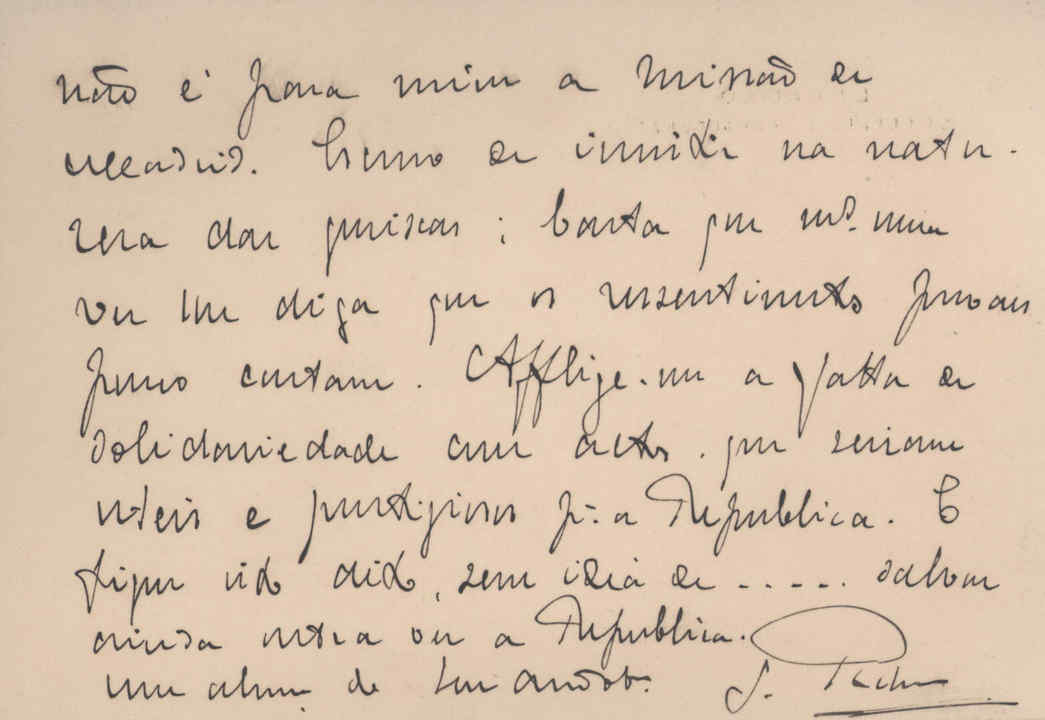 não é para mim a missão de
Madrid. Escuso de insistir na natu-
reza das ; basta que m.ª uma
vez lhe diga que os resentimentos pessoaes
pouco contam. Afflige-me a falta de
solidariedade com actos que seriam
uteis e prestigiosos p.ª a Republica. E
fique isto dito, sem ideia de ..... salvar
ainda outra vez a Republica.
Um abraço do seu am.º obr.º S.